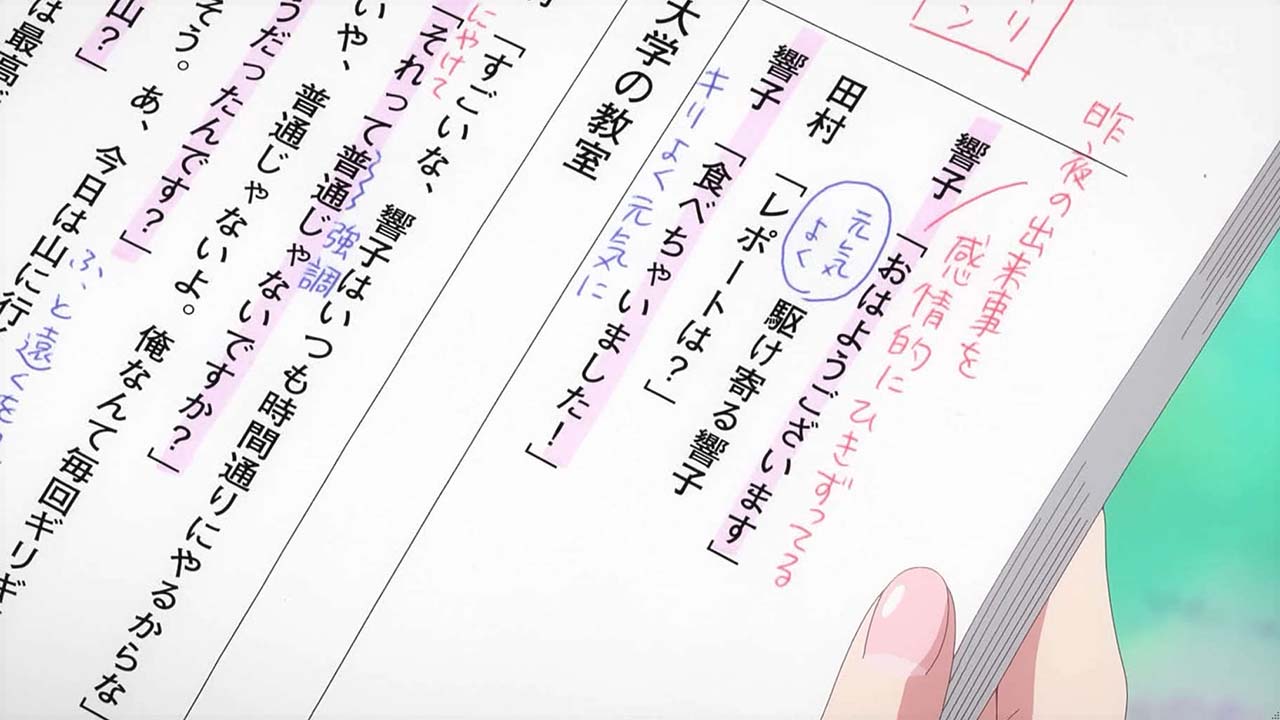 リ
ン
昨夜の出来事を
感情的にひきずってる
響子「おはようございます」
元気
よく
駆け寄る響子
田村「レポートは?」
響子「食べちゃいました!」
キリよく元気に
大学の教室
「すごいな、響子はいつも時間通りにやるからな」
にやけて
「それって普通じゃないですか?」
強調
いや、普通じゃないよ。俺なんて毎回ギリギ
うだったんです?」
そう。あ、今日は山に行く
ふと遠くを
山?」
は最高